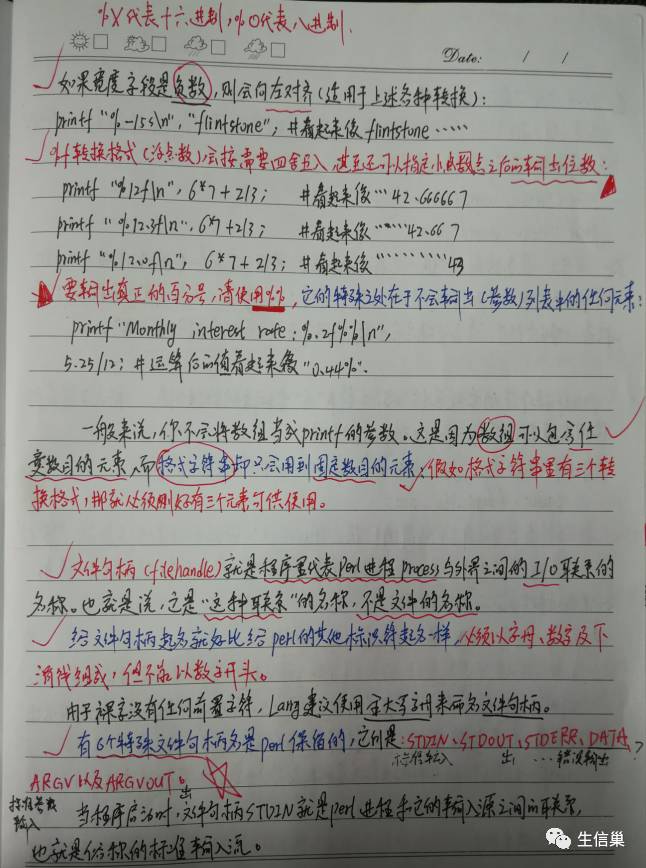 %X代表十六进制,%O代表八进制.
Date: / /
如果宽度字段是负数,则会向左对齐(适用于上述各种转换):
printf "%-15s\n", "flintstone"; #看起来像 flintstone·····
%f转换格式(浮点数)会按需要四舍五入,甚至还可以指定小数点之后的输出位数:
printf "%12f\n", 6*7+2/3; #看起来像···42.666667
printf "%12.3f\n", 6*7+2/3; #看起来像······42.667
printf "%12.0f\n", 6*7+2/3; #看起来像··········43
要输出真正的百分号,请使用%%,它的特殊之处在于不会输出(参数)列表中的任何元素:
printf "Monthly interest rate: %.2f%%\n",
5.25/12; #运算后的值看起来像"0.44%".
一般来说,你不会将数组当成printf的参数。这是因为数组可以包含任
意数目的元素,而格式字符串却只会用到固定数目的元素;假如格式字符串里有三个转
换格式,那就必须刚好有三个元素可供使用。
文件句柄(filehandle)就是程序里代表perl进程process与外界之间的I/O联系的
名称。也就是说,它是"这种联系"的名称,不是文件的名称。
给文件句柄起名就好比给perl的其他标识符起名一样,必须以字母、数字及下
滑线组成,但不能以数字开头。
由于裸字没有任何前置字符,Larry建议使用全大写字母来命名文件句柄。
有6个特殊文件句柄名是perl保留的,它们是:STDIN、STDOUT、STDERR、DATA、
标准输入 出 ···错误输出 ?
ARGV以及ARGVOUT。
标准参数输入 出
当程序启动时,文件句柄STDIN就是perl进程和它的输入源之间的联系,
也就是俗称的标准输入流。
生信巢